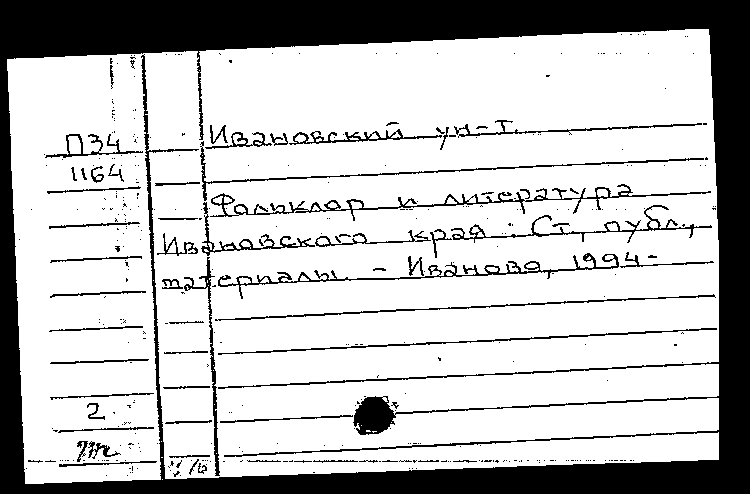 П34 Ивановский ун-т.
1164
Фольклор и литература
Ивановского края : Ст., публ.,
материалы. - Иваново, 1994-
2